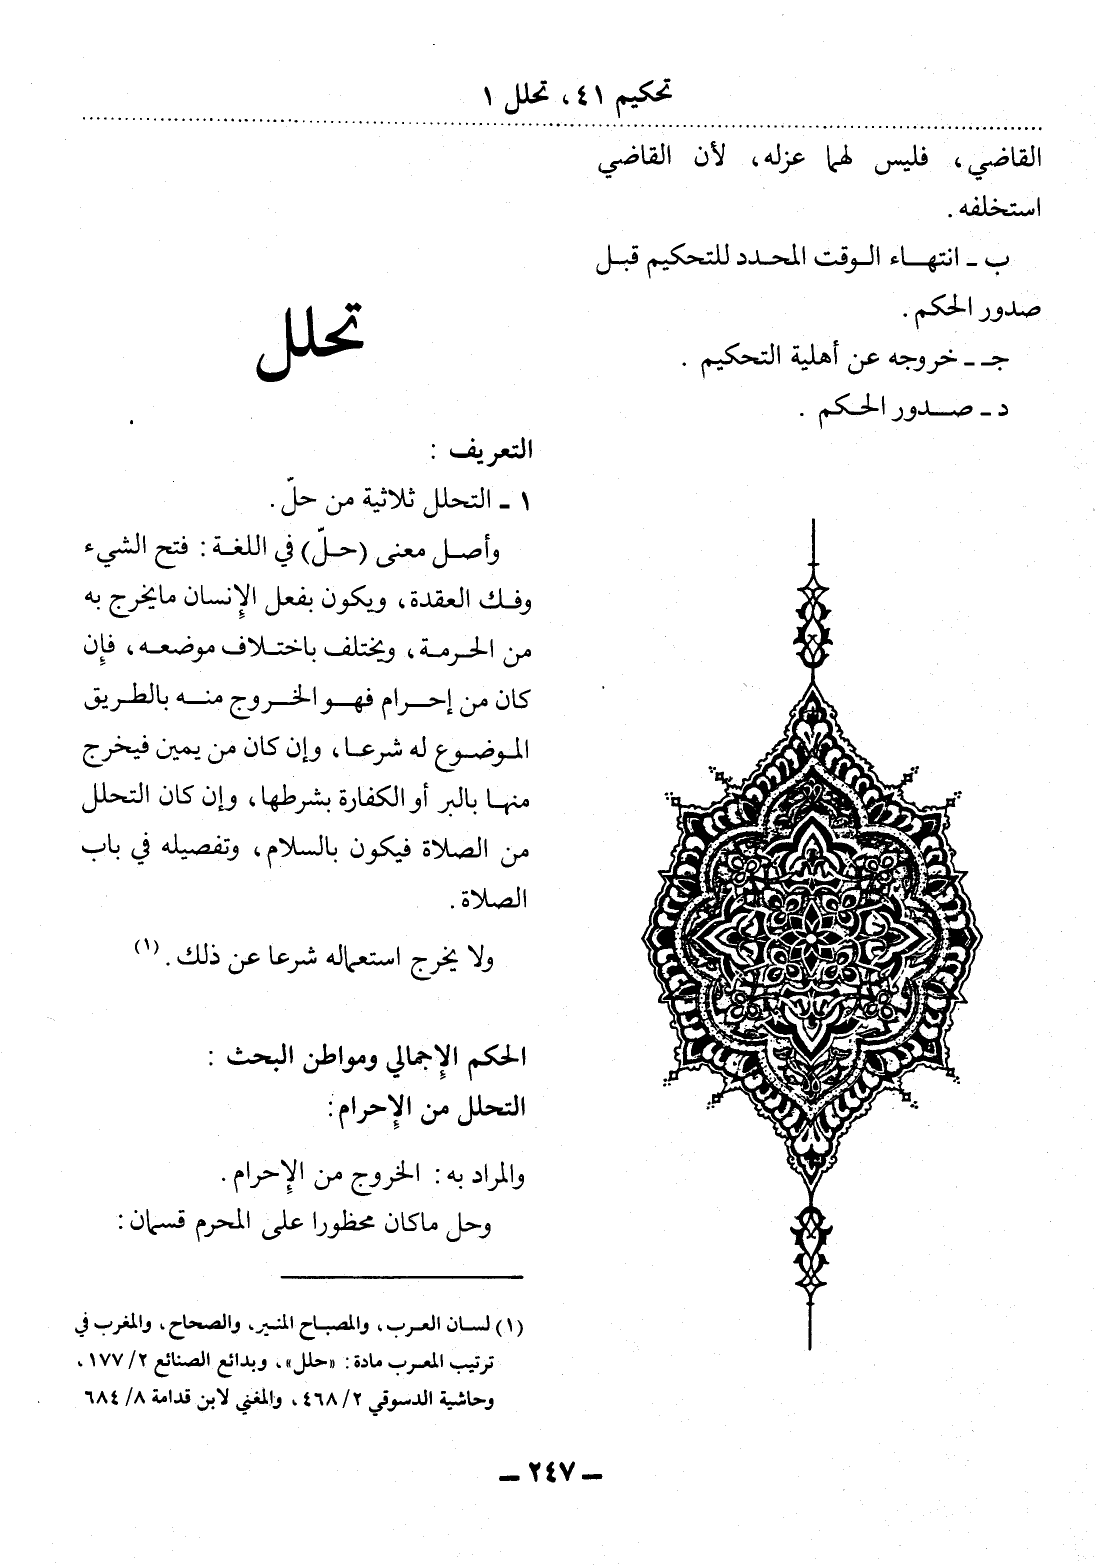 تحكيم ٤١، تحلل ١
القاضي، فليس لهما عزله، لأن القاضي
استخلفه.
ب ـ انتهاء الوقت المحدد للتحكيم قبل
صدور الحكم.
جـ ـ خروجه عن أهلية التحكيم.
د ـ صدور الحكم.
تحلل
التعريف :
١ ـ التحلل ثلاثية من حلّ.
وأصل معنى (حلّ) في اللغة: فتح الشيء
وفك العقدة، ويكون بفعل الإنسان مايخرج به
من الحرمة، ويختلف باختلاف موضعه، فإن
كان من إحرام فهو الخروج منه بالطريق
الموضوع له شرعا، وإن كان من يمين فيخرج
منها بالبر أو الكفارة بشرطها، وإن كان التحلل
من الصلاة فيكون بالسلام، وتفصيله في باب
الصلاة.
ولا يخرج استعماله شرعا عن ذلك.(١)
الحكم الإجمالي ومواطن البحث :
التحلل من الإحرام:
والمراد به: الخروج من الإحرام.
وحل ماكان محظورا على المحرم قسمان:
(١) لسان العرب، والمصباح المنير، والصحاح، والمغرب في
ترتيب المعرب مادة: «حلل»، وبدائع الصنائع ٢/ ١٧٧،
وحاشية الدسوقي ٢/ ٤٦٨، والمغني لابن قدامة ٨/ ٦٨٤
ـ ٢٤٧ ـ